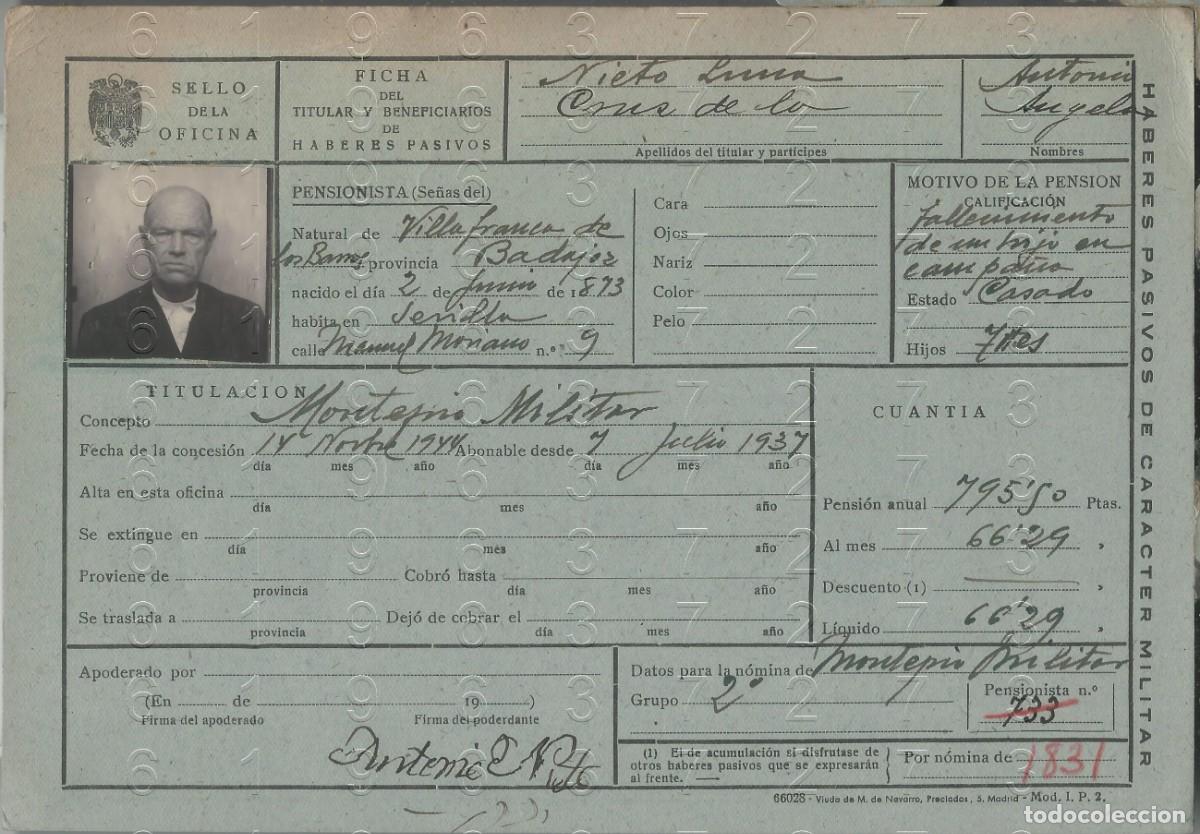 SELLO
DE LA
OFICINA
FICHA
DEL
TITULAR Y BENEFICIARIOS
DE
HABERES PASIVOS
Nieto Luna
Cruz de la
Apellidos del titular y partícipes
Antonio
Angela
Nombres
PENSIONISTA (Señas del)
Natural de Villafranca de
los Barros provincia Badajoz
nacido el día 2 de Junio de 1873
habita en Sevilla
calle Manuel Moriano n.º 9
Cara
Ojos
Nariz
Color
Pelo
MOTIVO DE LA PENSION
CALIFICACIÓN
Fallecimiento
de un hijo en
campaña
Estado Casado
Hijos
TITULACION
Concepto Montepio Militar
Fecha de la concesión 14 Novbre 1944 Abonable desde 7 Julio 1937
día mes año día mes año
Alta en esta oficina
día mes año
Se extingue en
día mes año
Proviene de Cobró hasta
provincia día mes año
Se traslada a Dejó de cobrar el
provincia día mes año
CUANTIA
Pensión anual 795'50 Ptas.
Al mes 66'29 »
Descuento (1) »
Líquido 66'29 »
HABERES PASIVOS DE CARACTER MILITAR
Apoderado por
(En de 19 )
Firma del apoderado Firma del poderdante
Antonio Nieto
Datos para la nómina de Montepio Militar
Grupo 2º
Pensionista n.º
733
(1) El de acumulación si disfrutase de
otros haberes pasivos que se expresarán
al frente. —
Por nómina de 1831
66028 - Viuda de M. de Navarro, Preciados, 5. Madrid - Mod. I. P. 2.
6 1 9 6 3 7 2 7 3
todocoleccion